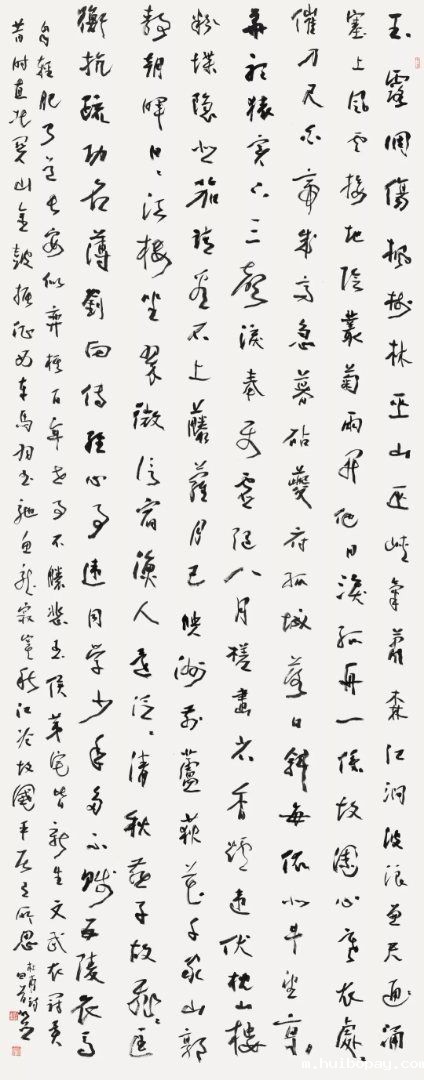 玉露凋傷楓樹林巫山巫峽氣蕭森江間波浪兼天涌
塞上風雲接地陰叢菊兩開他日淚孤舟一係故園心寒衣處處
催刀尺白帝城高急暮砧夔府孤城落日斜每依北斗望京
華聽猿實下三聲淚奉使虛隨八月槎畫省香爐違伏枕山樓
粉堞隱悲笳請看石上藤蘿月已映洲前蘆荻花千家山郭
靜朝暉日日江樓坐翠微信宿漁人還泛泛清秋燕子故飛飛匡
衡抗疏功名薄劉向傳經心事違同學少年多不賤五陵衣馬
自輕肥聞道長安似弈棋百年世事不勝悲王侯第宅皆新主文武衣冠異
昔時直北關山金鼓振征西車馬羽書馳魚龍寂寞秋江冷故國平居有所思
m.huibopay.com